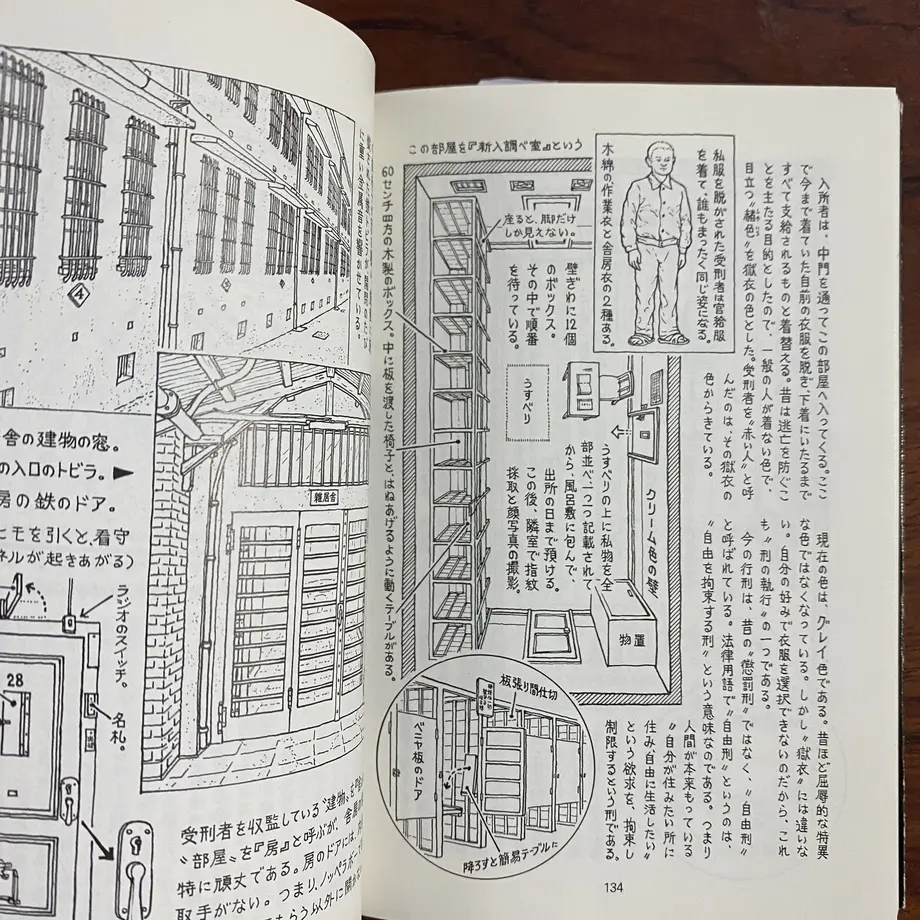 入所者は、中門を通ってこの部屋へ入ってくる。ここ
で今まで着ていた自前の衣服を脱ぎ、下着にいたるまで
すべて支給されるものと着替える。昔は逃亡を防ぐこ
とを主たる目的としたので、一般の人が着ない色で、
目立つ〝赭色〟を獄衣の色とした。受刑者を〝赤い人〟と呼
んだのは、その獄衣の
色からきている。
現在の色は、グレイ色である。昔ほど屈辱的な特異
な色ではなくなっている。しかし〝獄衣〟には違いな
い。自分の好みで衣服を選択できないのだから、これ
も〝刑の執行〟の一つである。
今の行刑は、昔の〝懲罰刑〟ではなく、〝自由刑〟
と呼ばれている。法律用語で〝自由刑〟というのは、
〝自由を拘束する刑〟という意味なのである。つまり
人間が本来もっている
〝自分が住みたい所に
住み、自由に生活したい〟
という欲求を、拘束し
制限するという刑である。
私服を脱がされた受刑者は官給服
を着て、誰もまったく同じ姿になる。
木綿の作業衣と舎房衣の2種ある。
この部屋を『新入調べ室』という
座ると、脚だけ
しか見えない。
壁ぎわに12個
のボックス。
その中で順番
を待っている。
うすべり
うすべりの上に私物を全
部並べ、一つ一つ記載されて
から、風呂敷に包んで、
出所の日まで預ける。
この後、隣室で指紋
採取と顔写真の撮影。
クリーム色の壁
物置
60センチ四方の木製のボックス。中に板を渡した椅子と、はねあげるように動くテーブルがある。
板張り間仕切
ベニヤ板のドア
降ろすと簡易テーブルに
134
に重い金属音を響かせている。
④
雑居舎
舎の建物の窓。
の入口のトビラ。▶
房の鉄のドア。
ヒモを引くと、看守
ネルが起きあがる)
ラジオのスイッチ。
28
名札。
受刑者を収監している〝建物〟を
〝部屋〟を『房』と呼ぶが、舎
特に頑丈である。房のドアには、
取手がない。つまり、ノッペラボ
もらう以外に開